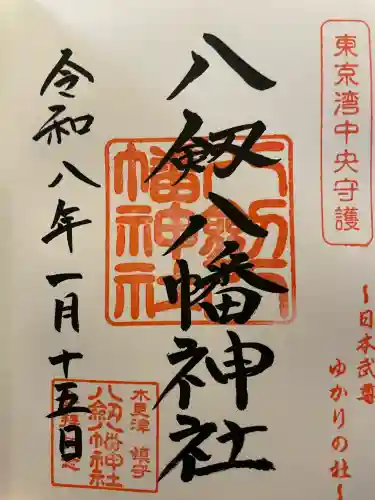 東京湾中央守護
~日本武尊
ゆかりの社~
八剱八幡神社
八剱八幡神社
令和八年一月十五日
木更津 鎮守
八剱八幡神社